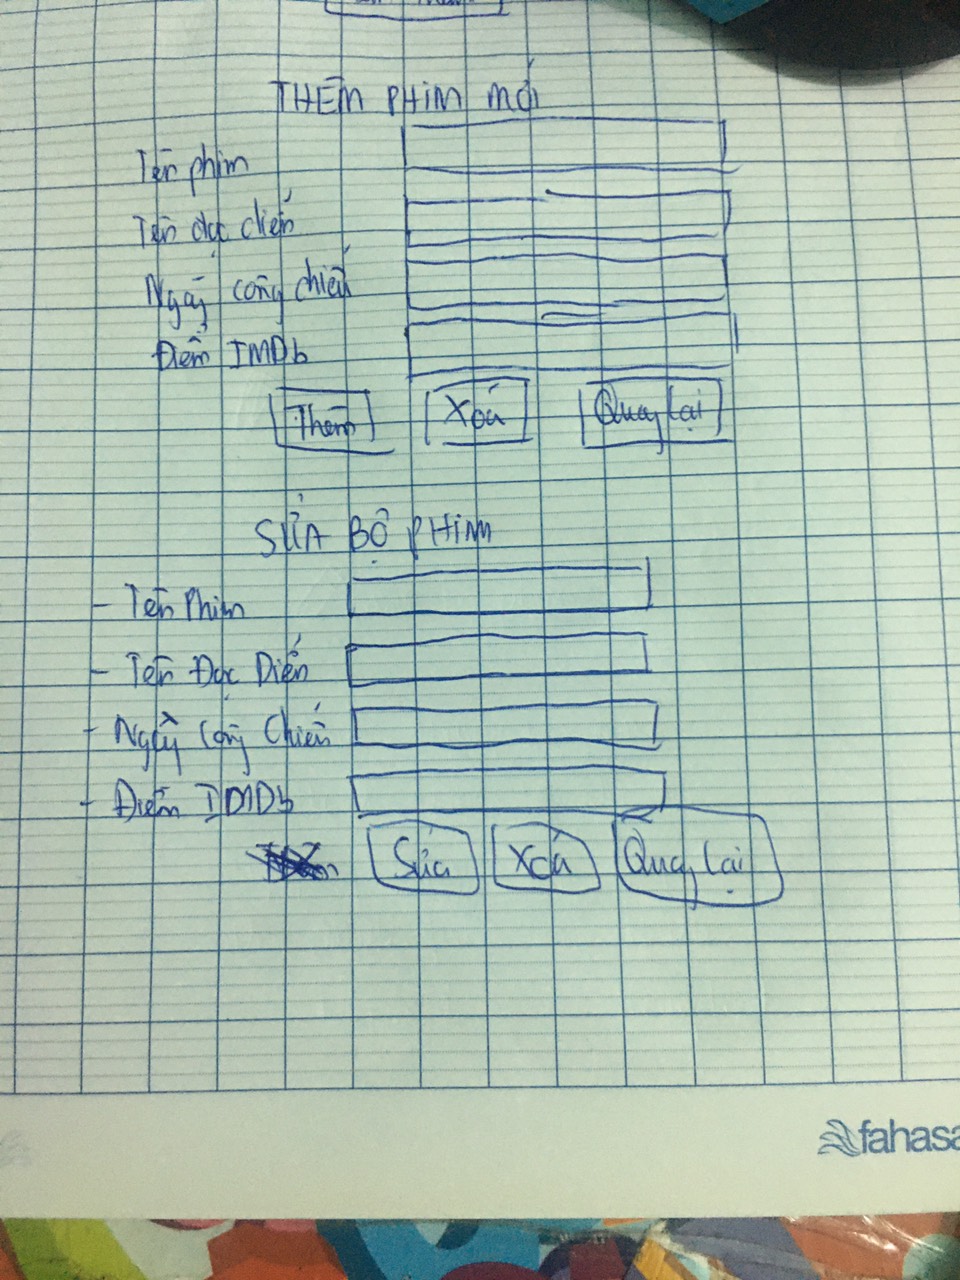 THÊM PHIM MỚI
Tên phim
Tên đạc diễn
Ngày công chiếu
Điểm IMDb
Thêm Xoá Quay lại
SỬA BỘ PHIM
- Tên Phim
- Tên Đạc Diễn
- Ngày Công Chiếu
- Điểm IMDb
Sửa Xoá Quay lại
fahasa